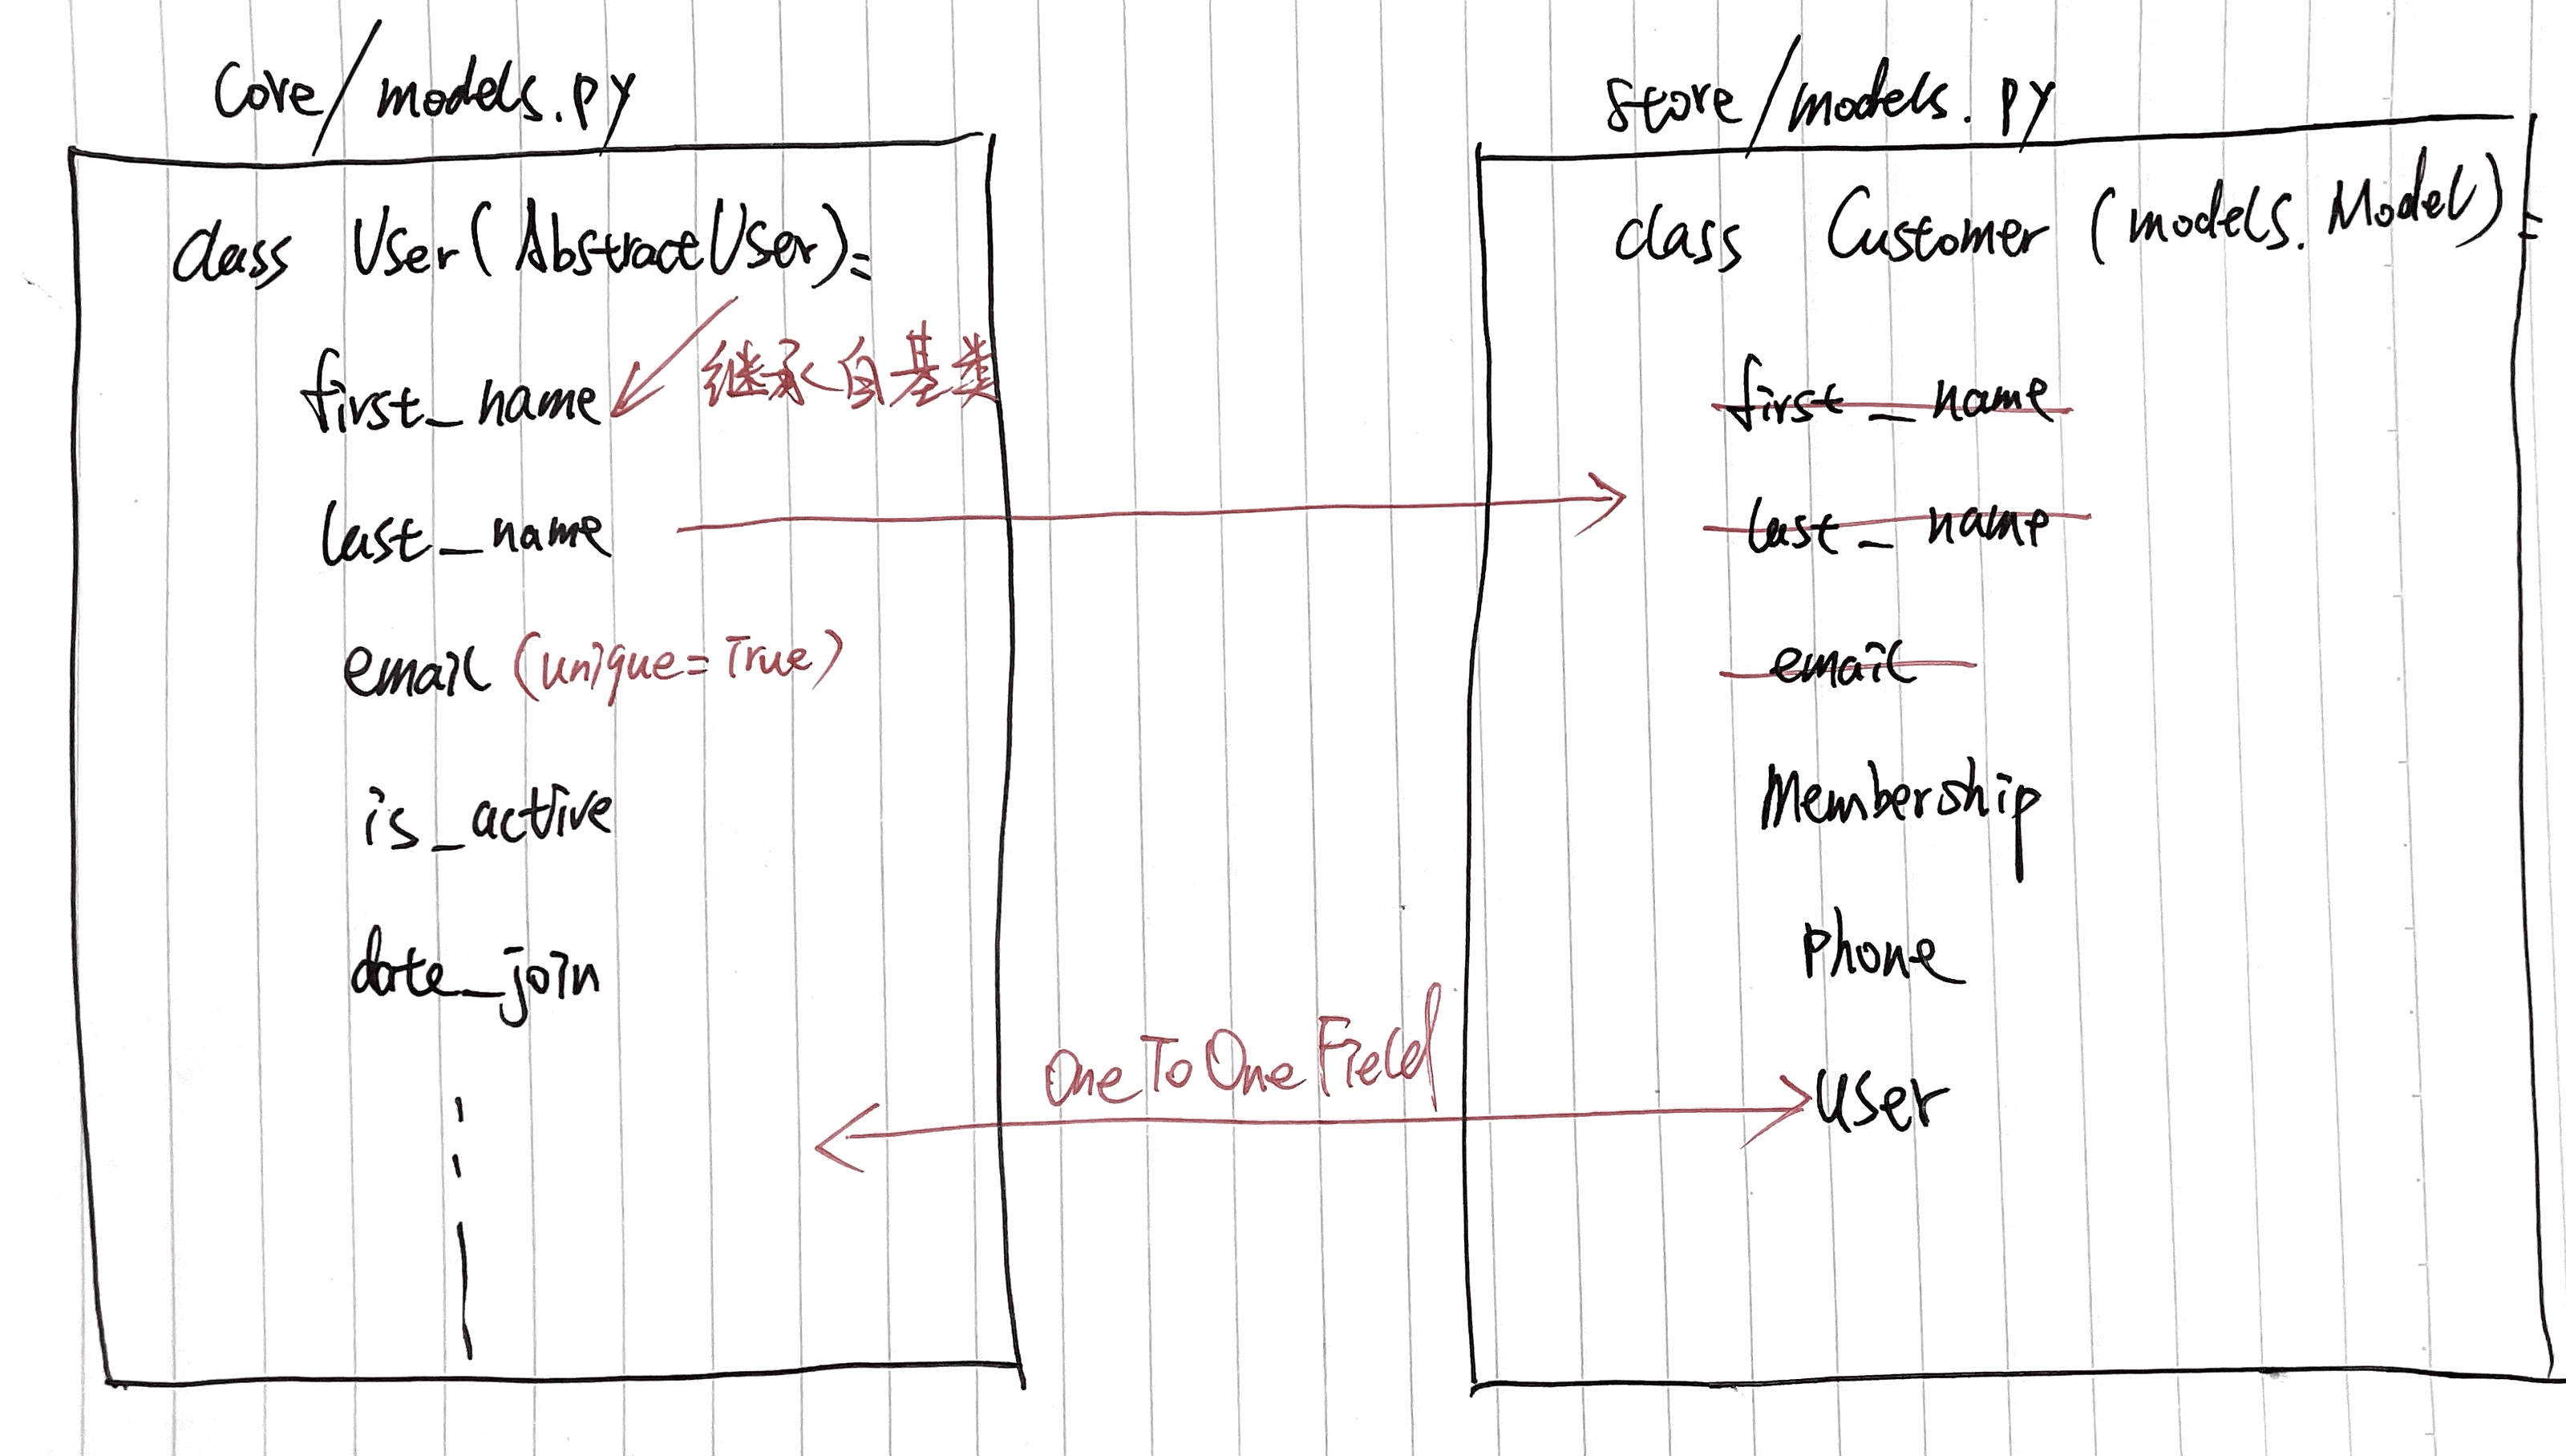 core/models.py
class User(AbstractUser):
first_name
继承自基类
last_name
email (unique=True)
is_active
date_join
OneToOneField
store/models.py
class Customer (models.Model):
first_name
last_name
email
Membership
phone
user